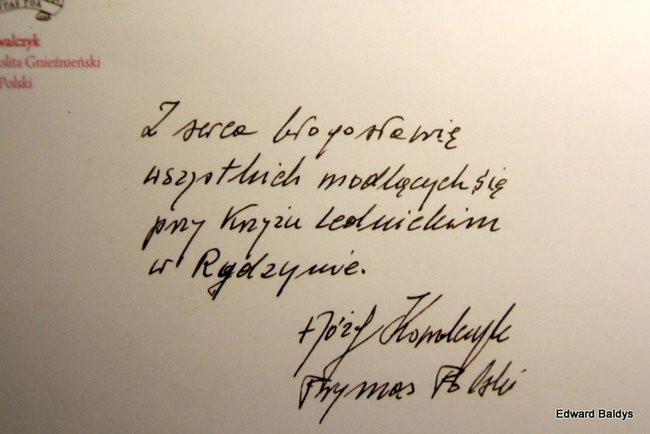 TAS TUA
walczyk
olita Gnieźnieński
Polski
Z serca błogosławię
wszystkich modlących się
przy Krzyżu Lednickim
w Rydzynie.
+Józef Kowalczyk
Prymas Polski
Edward Baldys